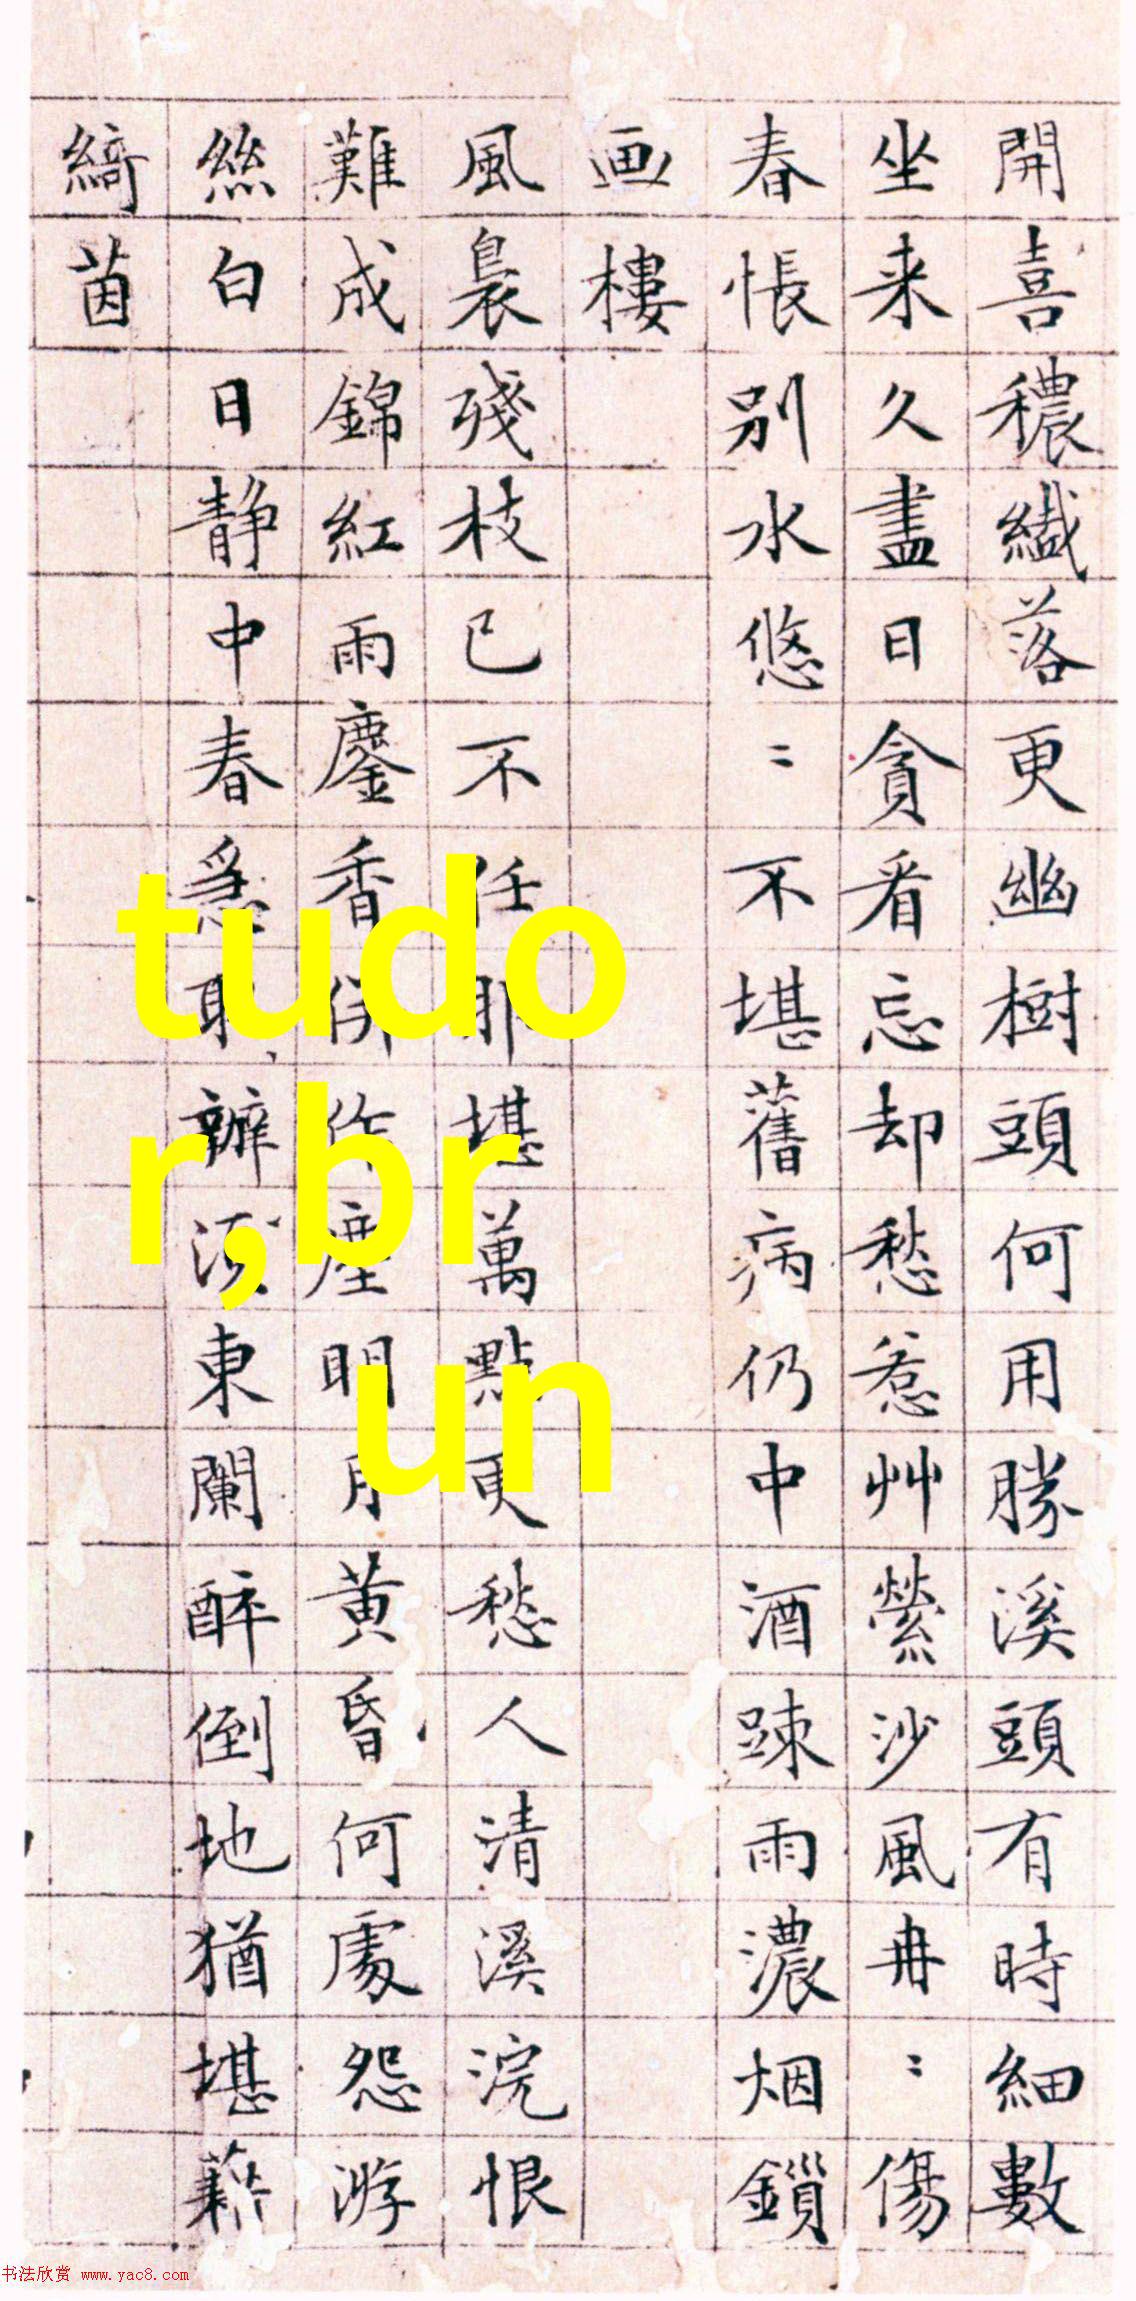 開喜穠纎落更幽樹頭何用勝溪頭有時細數
坐来久盡日貪看忘却愁惹艸縈沙風冉〻傷
春悵別水悠〻不堪舊病仍中酒踈雨濃烟鎖
画樓
風裊殘枝已不任那堪萬點更愁人清溪浣恨
難成錦紅雨鏖香併作塵明月黄昏何處怨游
絲白日静中春急取辦須東闌醉倒地猶堪藉
綺茵
tudo
r,br
un
书法欣赏 www.yac8.com